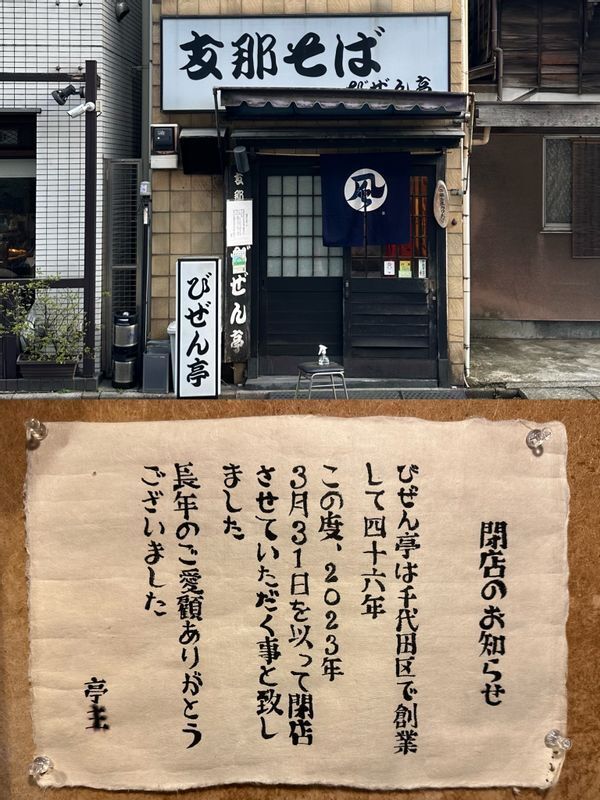 支那そば
びぜん亭
風
支那
ぜん亭
びぜん亭
閉店のお知らせ
びぜん亭は千代田区で創業
して四十六年
この度、2023年
3月31日を以って閉店
させていただく事と致し
ました
長年のご愛顧ありがとう
ございました
亭主